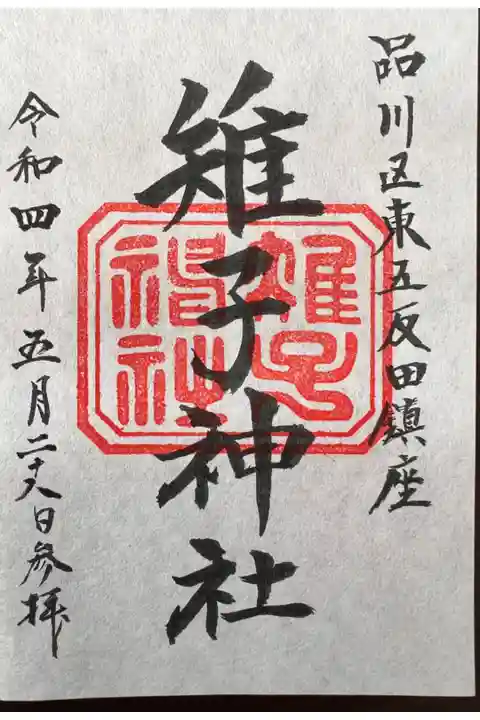 品川区東五反田鎮座
雉子神社
令和四年五月二十八日参拝